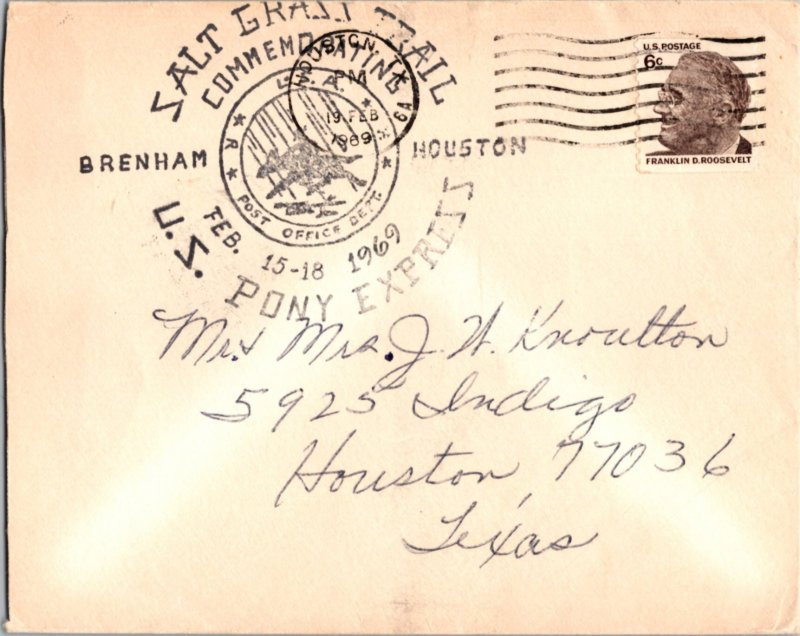 SALT GRASS TRAIL
COMMEMORATING
HOUSTON, TX
PM
19 FEB
1969
U.S. POSTAGE
6c
FRANKLIN D. ROOSEVELT
BRENHAM
HOUSTON
POST OFFICE DEPT.
FEB. 15-18 1969
U.S. PONY EXPRESS
Mr. & Mrs. J. W. Knoulton
5925 Indigo
Houston, 77036
Texas